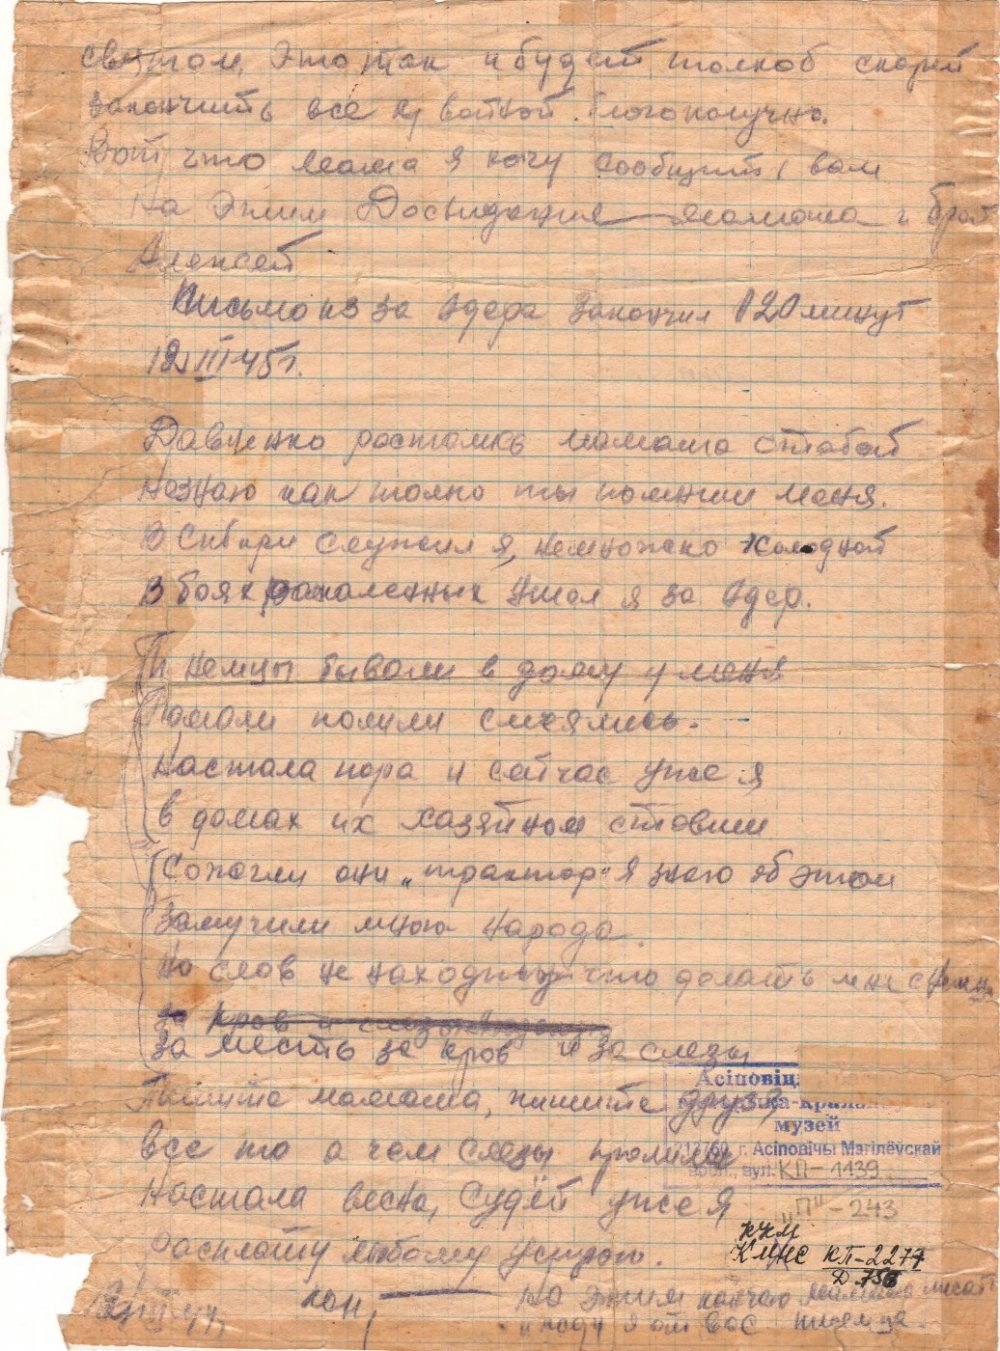 светом, Это так и будет толкоб скорей
закончить все с войной. благополучно.
Вот что мама я хочу сообщить вам
На Этим Досвидания мамаша и брат
Алексей
Письмо из за Одера закончил 020 минут
12 III 45 г.
Давненко растались мамаша стобой
незнаю как толко ты помниш меня.
В Сибири служил я, немножко холодной
В боях рокаленных ушол я за Одер.
Ти немцы бывали в дому у меня
Ломали полили смеялись.
Настала пора и сейчас уже я
в домах их хазяйном ставши
Сожгли они „трактор" я знаю об этом
Замучили много народа.
Но слов не находит что делать мне с
за кров и слезы
За месть за кров и за слезы
Пишите мамаша, пишите друзя
все то а чем слезы пролили
Настала весна, Судёй уже я
расплату любому устрою.
кон, На Этим кончаю мамаша писат
и жду я от вас писмеца.
Асіповіц
музей
213760, г. Асіповічы Магілёўскай
вобл., вул. КП-1139
"П"-243
ККМ
КМНС КП-2277
Д 756